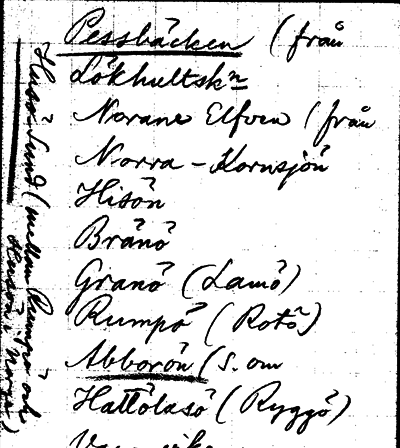 Pessbäcken (från
Lökhultskn
Norane Elfven (från
Norra - Kornsjön
Hisön
Bränö
Granö (Lamö)
Rumpö (Rotö)
Abborön (S. om
Hattölasö (Ryggö)
Husö Sund (mellan Rumpö och
Husön i Norge)